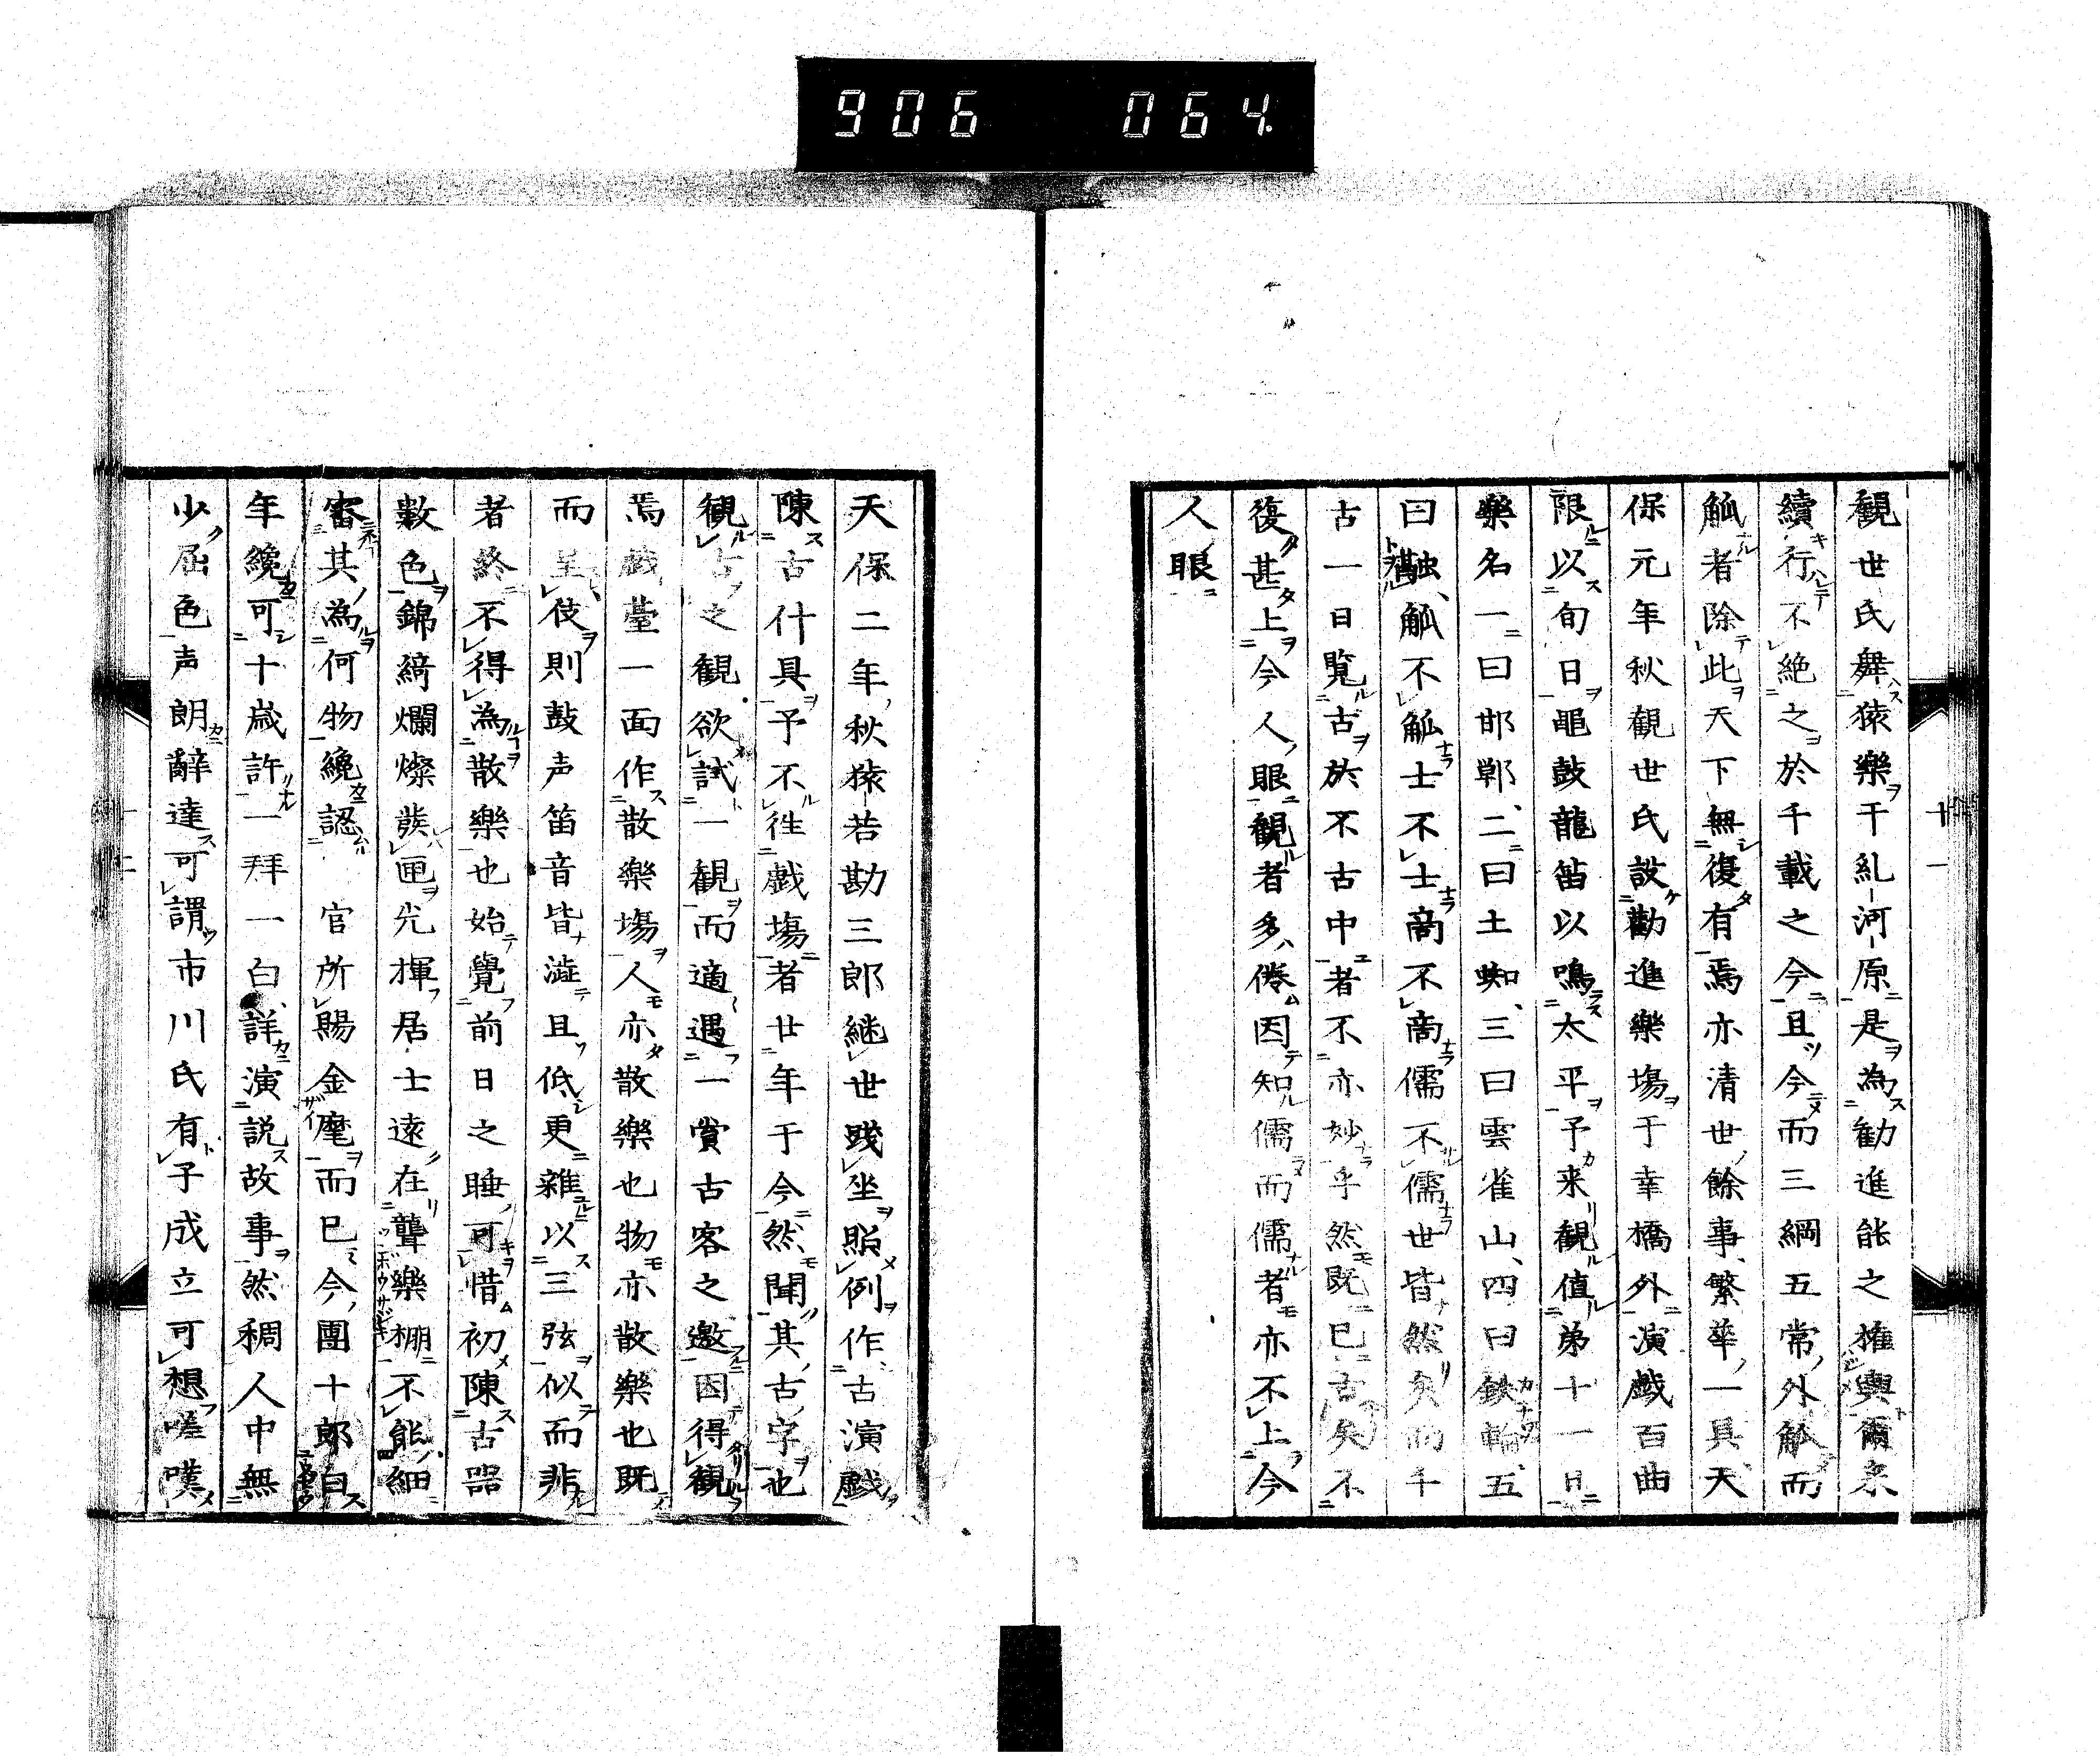 906 064
観世氏舞猿樂于糺河原是為勧進能之権輿爾来
續行不絶之於千載之今且今而三綱五常外觚而
觚者除此天下無復有焉亦清世餘事繁華一具天
保元年秋観世氏設勸進樂場于幸橋外演戯百曲
限以旬日黽鼓龍笛以鳴太平予来観值弟十一日
樂名一曰邯鄲二曰土蜘三曰雲雀山四曰鉄輪五
曰融觚不觚士不士商不商儒不儒世皆然矣而千
古一日覧古於不古中者不亦妙乎然既已古矣不
復甚上今人眼観者多倦因知儒而儒者亦不上今
人眼
十一
天保二年秋猿若勘三郎継世践坐照例作古演戯
陳古什具予不徃戯場者廿年于今然聞其古字也
観古之観欲試一観而適遇一賞古客之邀因得観
焉戯臺一面作散樂場人亦散樂也物亦散樂也既
而呈伎則鼓声笛音皆澁且低更雜以三弦似而非
者終不得為散樂也始覺前日之睡可惜初陳古器
數色錦綺爛燦發匣光揮居士遠在聾樂棚不能細
審其為何物纔認官所賜金麾而已今團十郎白
年纔可十歳許一拜一白詳演説故事然稠人中無
少屈色声朗辭達可謂市川氏有子成立可想嗟嘆